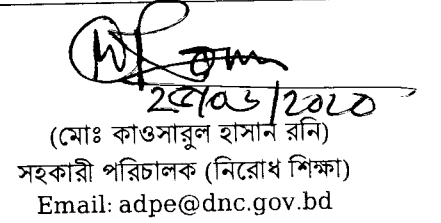 (মোঃ কাওসারুল হাসান রনি)
সহকারী পরিচালক (নিরোধ শিক্ষা)
Email: adpe@dnc.gov.bd